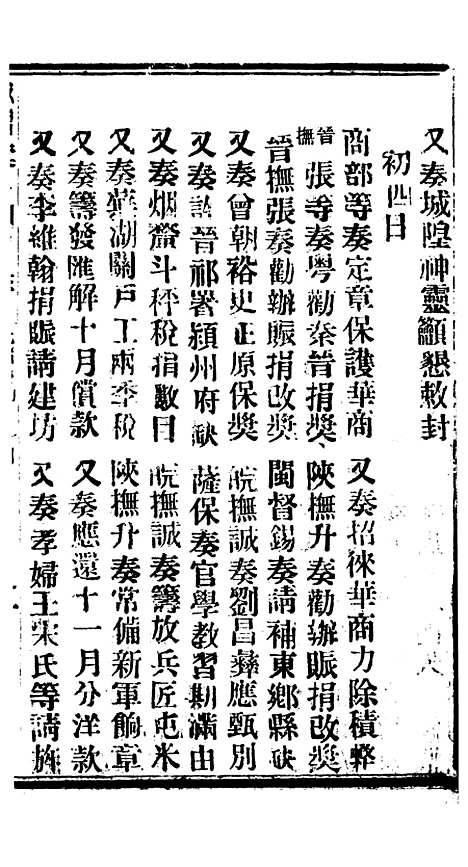 又奏城隍神靈籲懇敕封
初四日
商部等奏定章保護華商　又奏招徠華商力除積弊
晉撫張等奏粵勸秦晉捐獎　陝撫升奏勸辦賑捐改獎
晉撫張奏勸辦賑捐改獎　閩督錫奏請補東鄉縣缺
又奏曾朝裕史正原保獎　皖撫誠奏劉昌彝應甄別
又奏晉祁署潁州府缺　薩保奏官學教習期滿由
又奏烟膏斗秤稅捐數目　皖撫誠奏籌放兵匠屯米
又奏蕪湖關戶工兩季稅　陝撫升奏常備新軍餉章
又奏籌發匯解十月償款　又奏應還十一月分洋款
又奏李維翰捐賑請建坊　又奏孝婦王宋氏等請旌